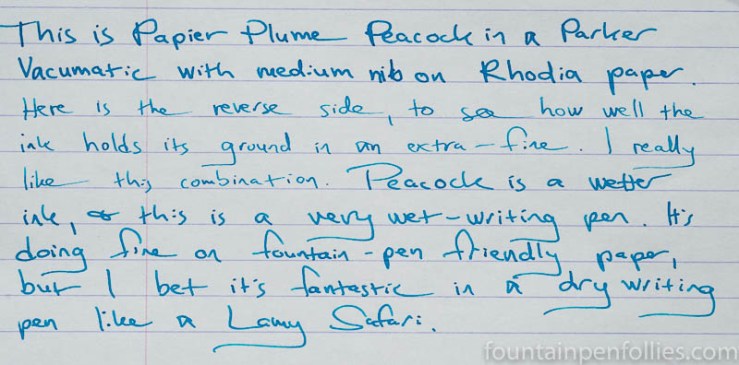 This is Papier Plume Peacock in a Parker
Vacumatic with medium nib on Rhodia paper.
Here is the reverse side, to see how well the
ink holds its ground in an extra-fine. I really
like this combination. Peacock is a wetter
ink, & this is a very wet-writing pen. It's
doing fine on fountain-pen friendly paper,
but I bet it's fantastic in a dry writing
pen like a Lamy Safari.
fountainpenfollies.com